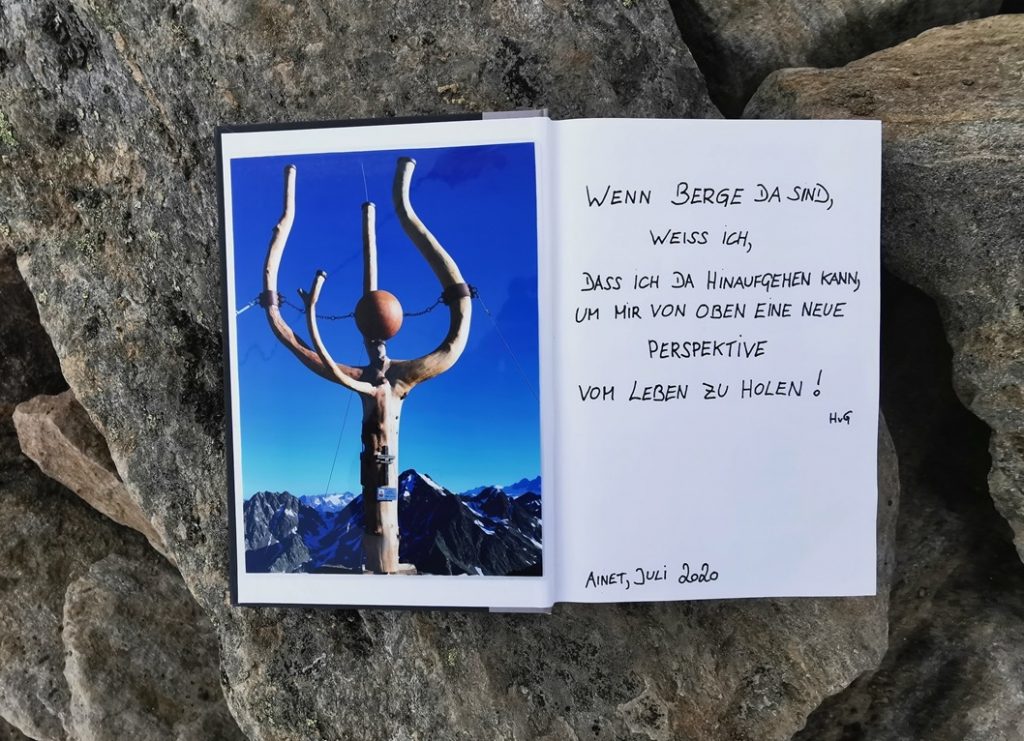 WENN BERGE DA SIND,
WEISS ICH,
DASS ICH DA HINAUFGEHEN KANN,
UM MIR VON OBEN EINE NEUE
PERSPEKTIVE
VOM LEBEN ZU HOLEN!
HvG
AINET, JULI 2020